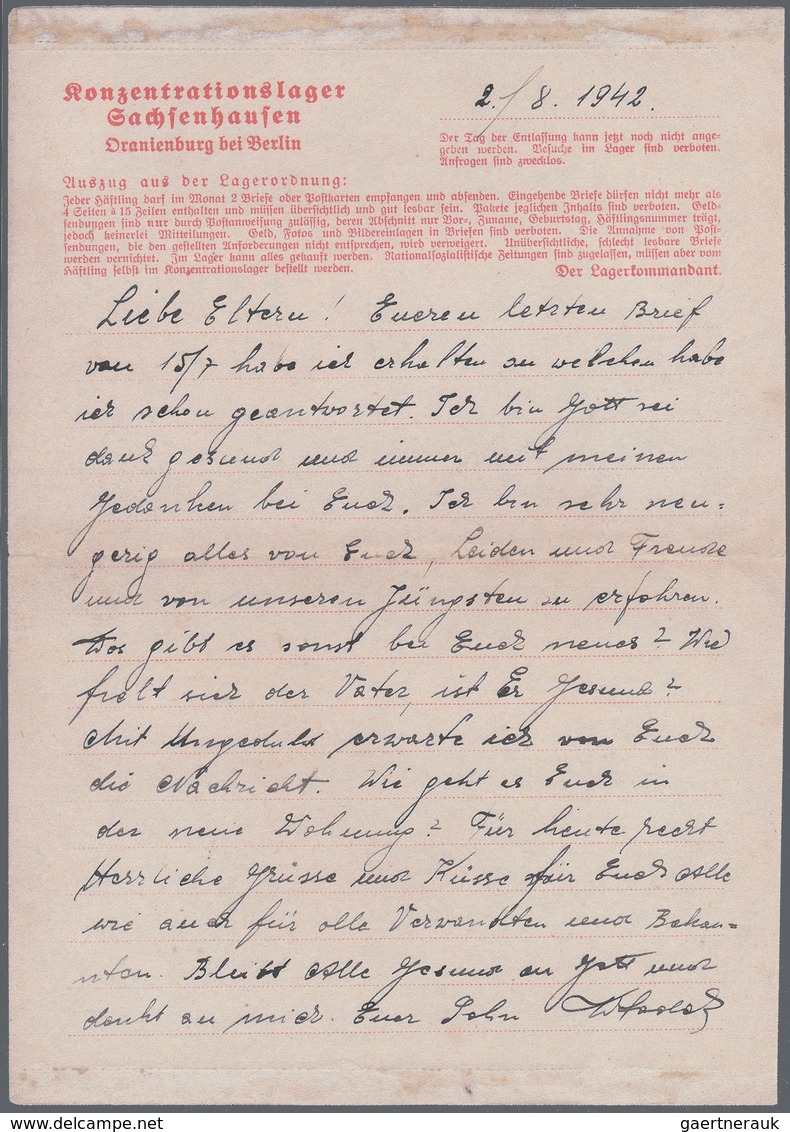 Konzentrationslager
Sachsenhausen
Oranienburg bei Berlin
2./8. 1942.
Der Tag der Entlassung kann jetzt noch nicht ange-
geben werden. Besuche im Lager sind verboten.
Anfragen sind zwecklos.
Auszug aus der Lagerordnung:
Jeder Häftling darf im Monat 2 Briefe oder Postkarten empfangen und absenden. Eingehende Briefe dürfen nicht mehr als
4 Seiten à 15 Zeilen enthalten und müssen übersichtlich und gut lesbar sein. Pakete jeglichen Inhalts sind verboten. Geld-
sendungen sind nur durch Postanweisung zulässig, deren Abschnitt nur Vor-, Zuname, Geburtstag, Häftlingsnummer trägt,
jedoch keinerlei Mitteilungen. Geld, Fotos und Bildereinlagen in Briefen sind verboten. Die Annahme von Post-
sendungen, die den gestellten Anforderungen nicht entsprechen, wird verweigert. Unübersichtliche, schlecht lesbare Briefe
werden vernichtet. Im Lager kann alles gekauft werden. Nationalsozialistische Zeitungen sind zugelassen, müssen aber vom
Häftling selbst im Konzentrationslager bestellt werden.
Der Lagerkommandant.
Liebe Eltern! Eueren letzten Brief
von 15/7 habe ich erhalten zu welchen habe
ich schon geantwortet. Ich bin Gott sei
dank gesund und immer mit meinen
Gedanken bei Euch. Ich bin sehr neu-
gerig alles von Euch, Leiden und Freude
und von unseren Jüngsten zu erfahren.
Was gibt es sonst bei Euch neues? Wie
fielt sich der Vater, ist Er Gesund?
Mit Ungeduld erwarte ich von Euch
die Nachricht. Wie geht es Euch in
der neue Wohnung? Für heute recht
Herrliche Grüsse und Küsse für Euch Alle
wie auch für alle Verwandten und Bekan-
nten. Bleibt Alle Gesund an Gott und
denkt an mich. Euer Sohn
delcampe.net
gaertnerauk